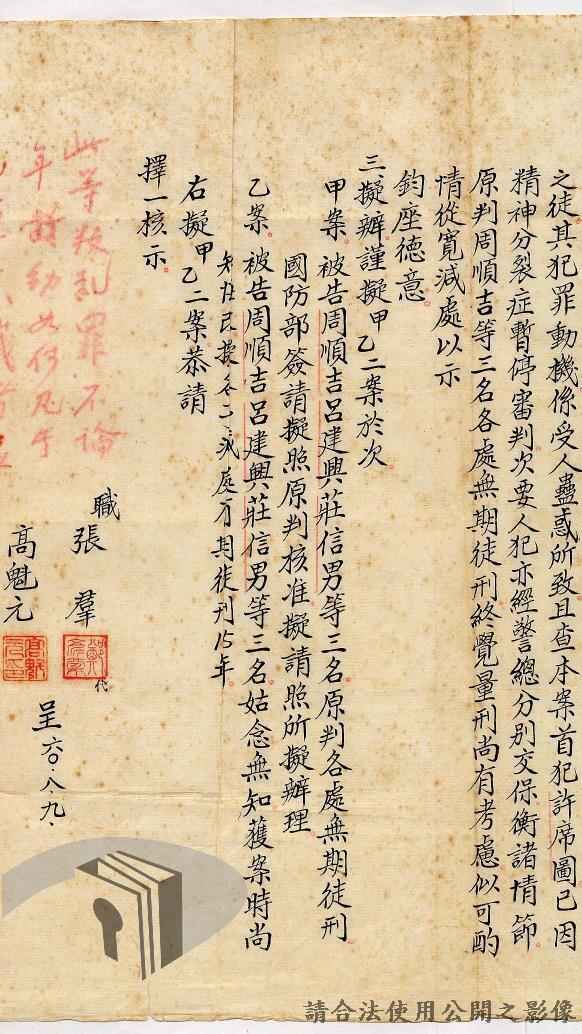 之徒其犯罪動機係受人蠱惑所致且查本案首犯許席圖已因
精神分裂症暫停審判次要人犯亦經警總分別交保衡諸情節
原判周順吉等三名各處無期徒刑終覺量刑尚有考慮似可酌
情從寬減處以示
鈞座德意。
三、擬辦：謹擬甲乙二案於次
甲案。被告周順吉呂建興莊信男等三名原判各處無期徒刑
國防部簽請擬照原判核准擬請照所擬辦理
乙案。被告周順吉呂建興莊信男等三名姑念無知獲案時尚
處有期徒刑15年。
右擬甲乙二案恭請
擇一核示。
職張羣
高魁元
代
呈六〇、八、九、
此等叛亂罪不論
年齡幼如何凡于
請合法使用公開之影像